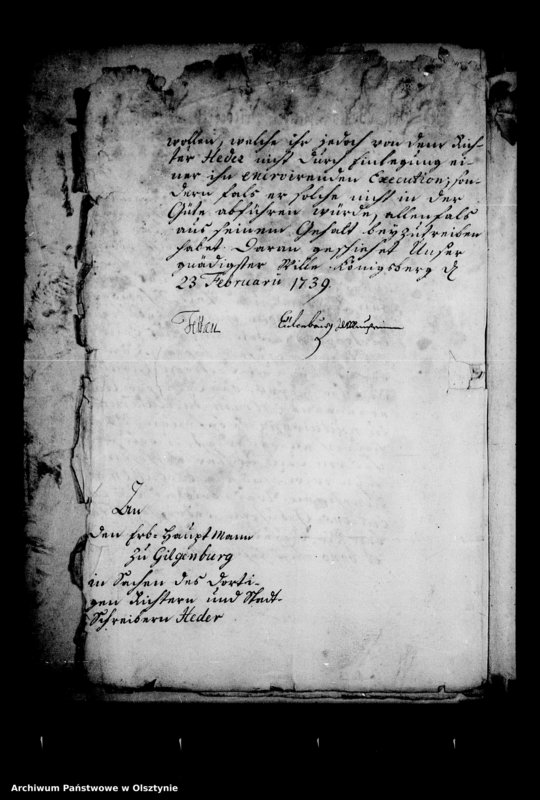 wollen, welche ihr jedoch von dem Rich-
ter Heder nicht durch Einlegung ei-
ner ihn enervirenden Execution; son-
dern fals er solche nicht in der
Güte abführen würde, allenfals
aus seinem Gehalt beyzutreiben
habet. Daran geschiehet Unser
gnädigster Wille. Königsberg d
23 Februarii 1739
An
den Erb-Haupt Mann
zu Gilgenburg
in Sachen des dorti-
gen Richtern und Stadt-
Schreibern Heder
Archiwum Państwowe w Olsztynie